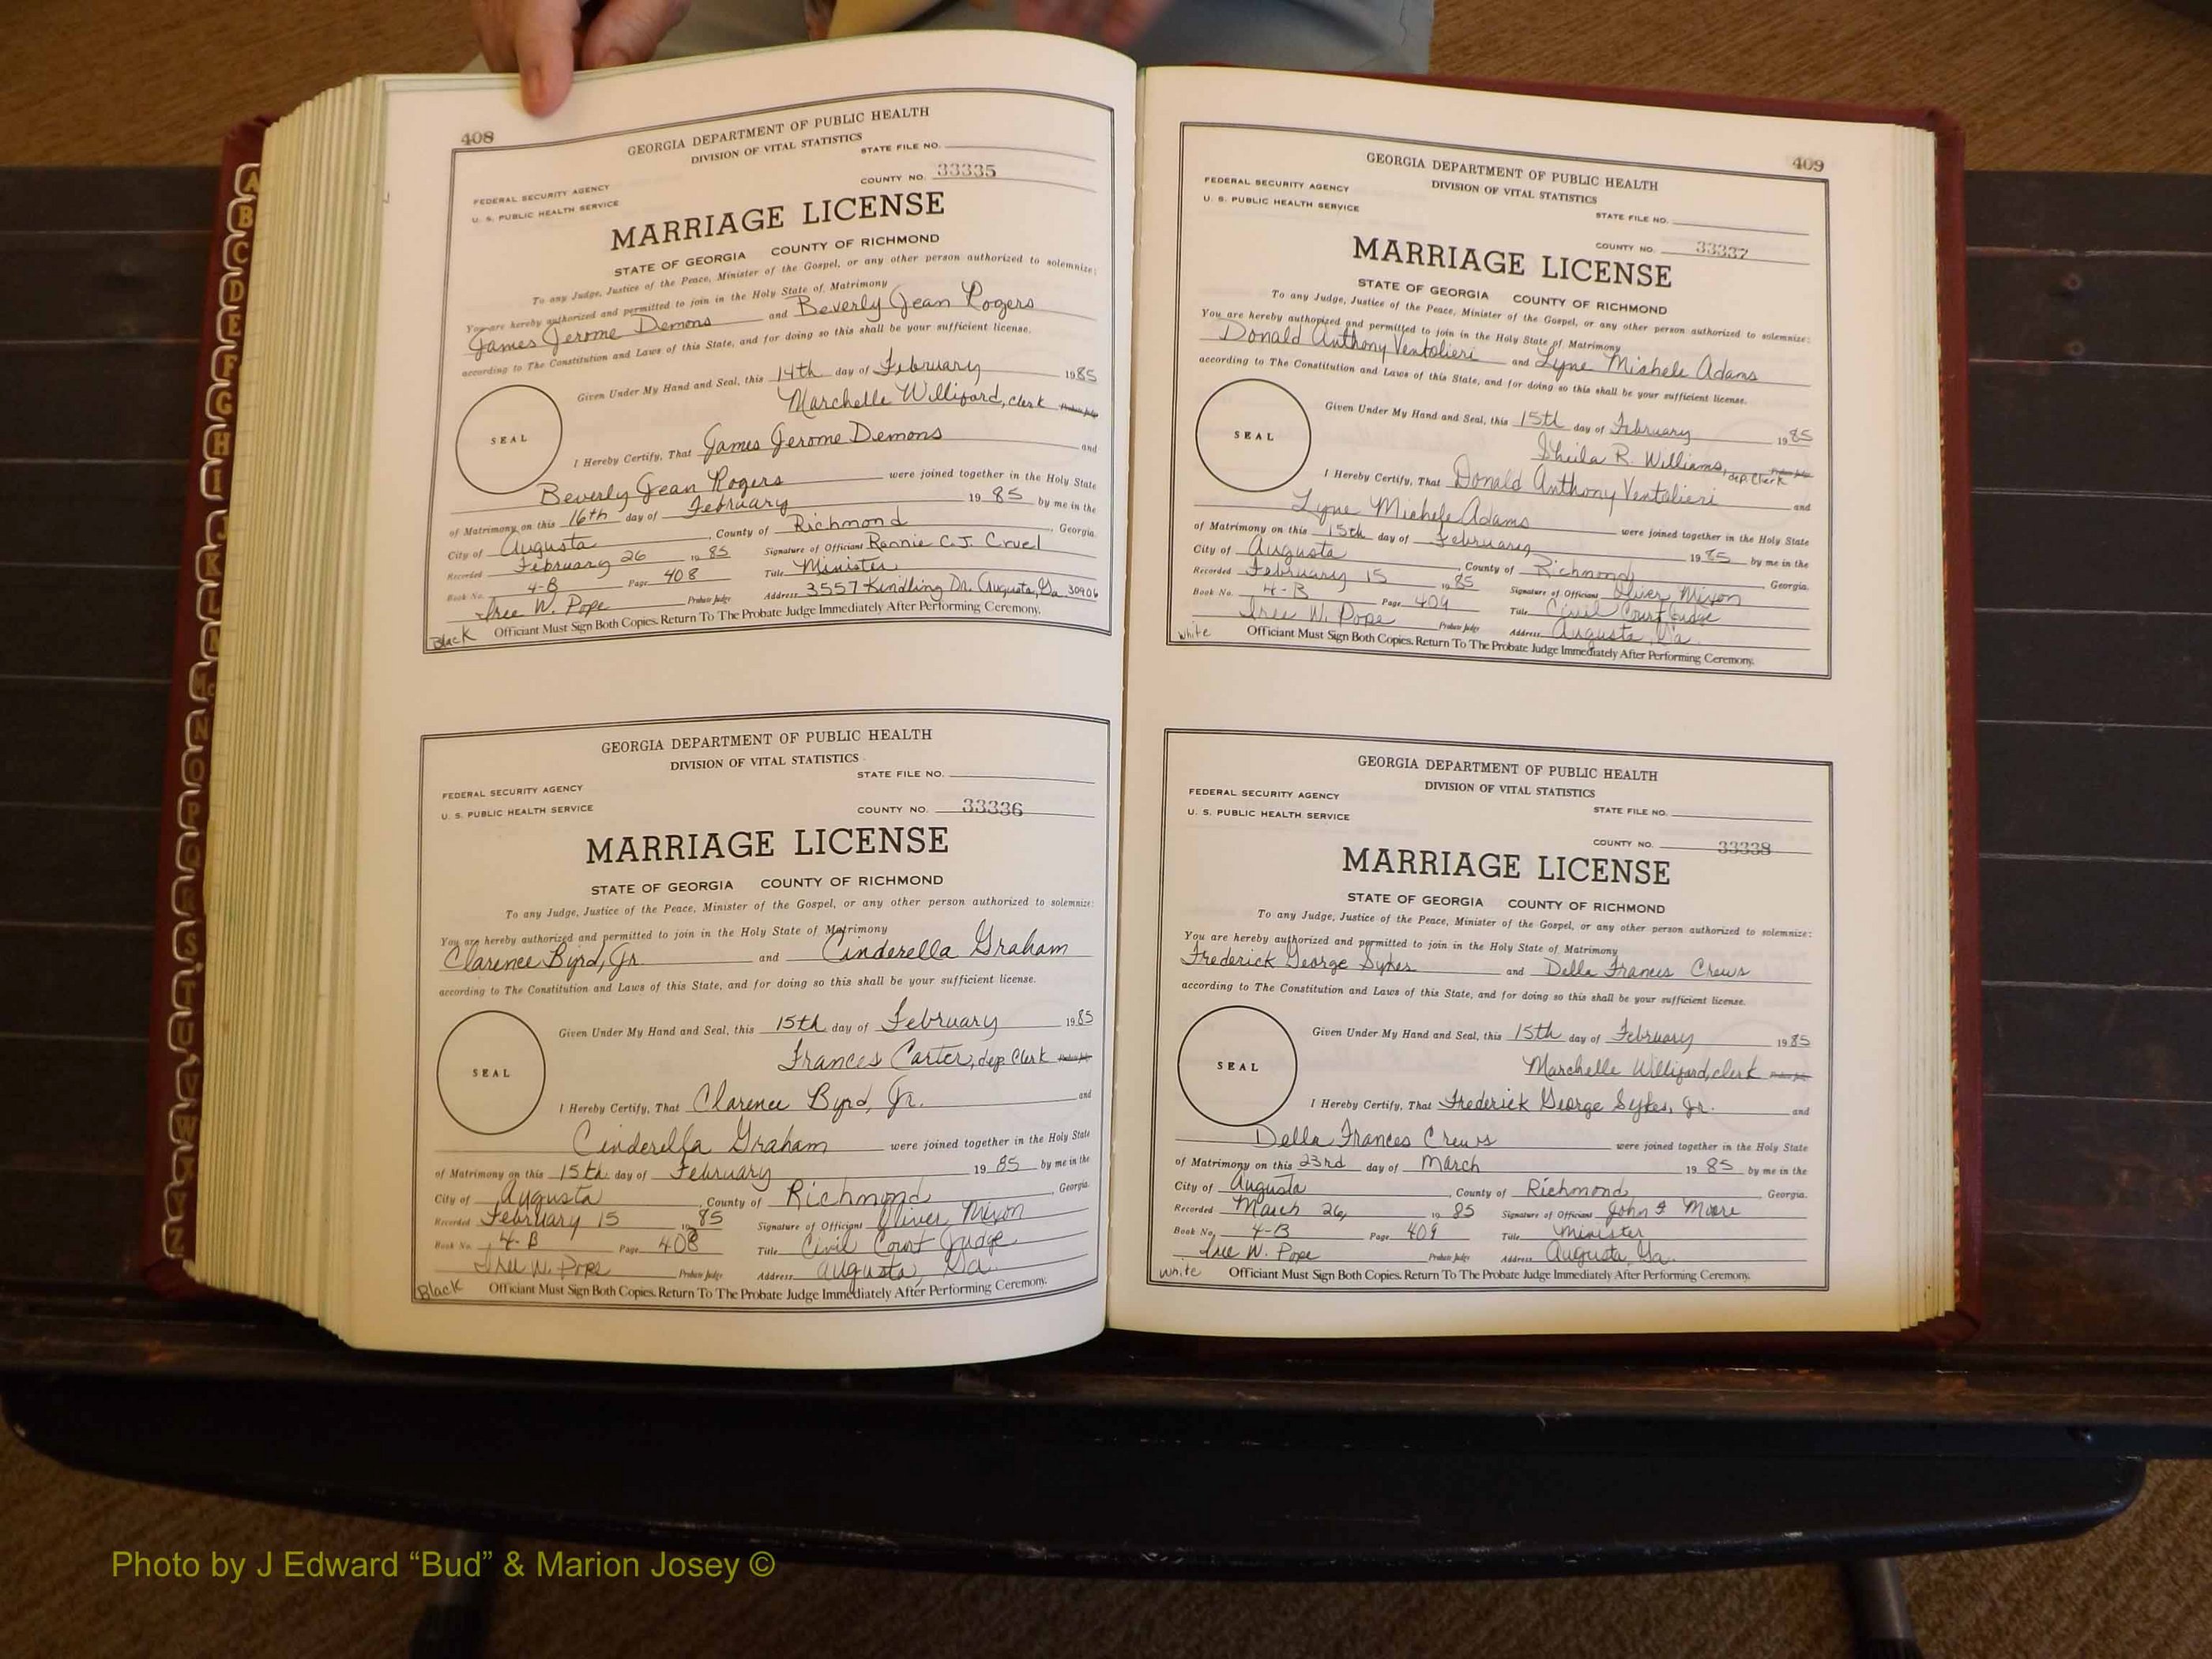 408
GEORGIA DEPARTMENT OF PUBLIC HEALTH
DIVISION OF VITAL STATISTICS
STATE FILE NO.
COUNTY NO. 33335
FEDERAL SECURITY AGENCY
U. S. PUBLIC HEALTH SERVICE
MARRIAGE LICENSE
STATE OF GEORGIA COUNTY OF RICHMOND
To any Judge, Justice of the Peace, Minister of the Gospel, or any other person authorized to solemnize:
You are hereby authorized and permitted to join in the Holy State of Matrimony
James Jerome Demons and Beverly Jean Rogers
according to The Constitution and Laws of this State, and for doing so this shall be your sufficient license.
Given Under My Hand and Seal, this 14th day of February 1985
Marchelle Williford, Clerk Probate Judge
SEAL
I Hereby Certify, That James Jerome Demons and
Beverly Jean Rogers were joined together in the Holy State
of Matrimony on this 16th day of February 1985 by me in the
City of Augusta, County of Richmond, Georgia.
Recorded February 26 1985 Signature of Officiant Rannie C.J. Cruel
Book No. 4-B Page 408 Title Minister
Iree W. Pope Probate Judge Address 3557 Kindling Dr. Augusta, Ga. 30906
Black Officiant Must Sign Both Copies. Return To The Probate Judge Immediately After Performing Ceremony.
GEORGIA DEPARTMENT OF PUBLIC HEALTH
DIVISION OF VITAL STATISTICS
STATE FILE NO.
FEDERAL SECURITY AGENCY
U. S. PUBLIC HEALTH SERVICE
COUNTY NO. 33336
MARRIAGE LICENSE
STATE OF GEORGIA COUNTY OF RICHMOND
To any Judge, Justice of the Peace, Minister of the Gospel, or any other person authorized to solemnize:
You are hereby authorized and permitted to join in the Holy State of Matrimony
Clarence Byrd, Jr. and Cinderella Graham
according to The Constitution and Laws of this State, and for doing so this shall be your sufficient license.
Given Under My Hand and Seal, this 15th day of February 1985
Frances Carter, dep. Clerk Probate Judge
SEAL
I Hereby Certify, That Clarence Byrd, Jr. and
Cinderella Graham were joined together in the Holy State
of Matrimony on this 15th day of February 1985 by me in the
City of Augusta, County of Richmond, Georgia.
Recorded February 15 1985 Signature of Officiant Oliver Mixon
Book No. 4-B Page 408 Title Civil Court Judge
Iree W. Pope Probate Judge Address Augusta, Ga.
Black Officiant Must Sign Both Copies. Return To The Probate Judge Immediately After Performing Ceremony.
409
GEORGIA DEPARTMENT OF PUBLIC HEALTH
DIVISION OF VITAL STATISTICS
FEDERAL SECURITY AGENCY
U. S. PUBLIC HEALTH SERVICE
STATE FILE NO.
COUNTY NO. 33337
MARRIAGE LICENSE
STATE OF GEORGIA COUNTY OF RICHMOND
To any Judge, Justice of the Peace, Minister of the Gospel, or any other person authorized to solemnize:
You are hereby authorized and permitted to join in the Holy State of Matrimony
Donald Anthony Ventolieri and Lyne Michele Adams
according to The Constitution and Laws of this State, and for doing so this shall be your sufficient license.
Given Under My Hand and Seal, this 15th day of February 1985
Sheila R. Williams, dep. Clerk Probate Judge
SEAL
I Hereby Certify, That Donald Anthony Ventolieri and
Lyne Michele Adams were joined together in the Holy State
of Matrimony on this 15th day of February 1985 by me in the
City of Augusta, County of Richmond, Georgia.
Recorded February 15 1985 Signature of Officiant Oliver Mixon
Book No. 4-B Page 409 Title Civil Court Judge
Iree W. Pope Probate Judge Address Augusta, Ga.
White Officiant Must Sign Both Copies. Return To The Probate Judge Immediately After Performing Ceremony.
GEORGIA DEPARTMENT OF PUBLIC HEALTH
DIVISION OF VITAL STATISTICS
FEDERAL SECURITY AGENCY
U. S. PUBLIC HEALTH SERVICE
STATE FILE NO.
COUNTY NO. 33338
MARRIAGE LICENSE
STATE OF GEORGIA COUNTY OF RICHMOND
To any Judge, Justice of the Peace, Minister of the Gospel, or any other person authorized to solemnize:
You are hereby authorized and permitted to join in the Holy State of Matrimony
Frederick George Sykes and Della Frances Crews
according to The Constitution and Laws of this State, and for doing so this shall be your sufficient license.
Given Under My Hand and Seal, this 15th day of February 1985
Marchelle Williford, clerk Probate Judge
SEAL
I Hereby Certify, That Frederick George Sykes, Jr. and
Della Frances Crews were joined together in the Holy State
of Matrimony on this 23rd day of March 1985 by me in the
City of Augusta, County of Richmond, Georgia.
Recorded March 26, 1985 Signature of Officiant John Moore
Book No. 4-B Page 409 Title Minister
Iree W. Pope Probate Judge Address Augusta, Ga.
White Officiant Must Sign Both Copies. Return To The Probate Judge Immediately After Performing Ceremony.
Photo by J Edward “Bud” & Marion Josey ©